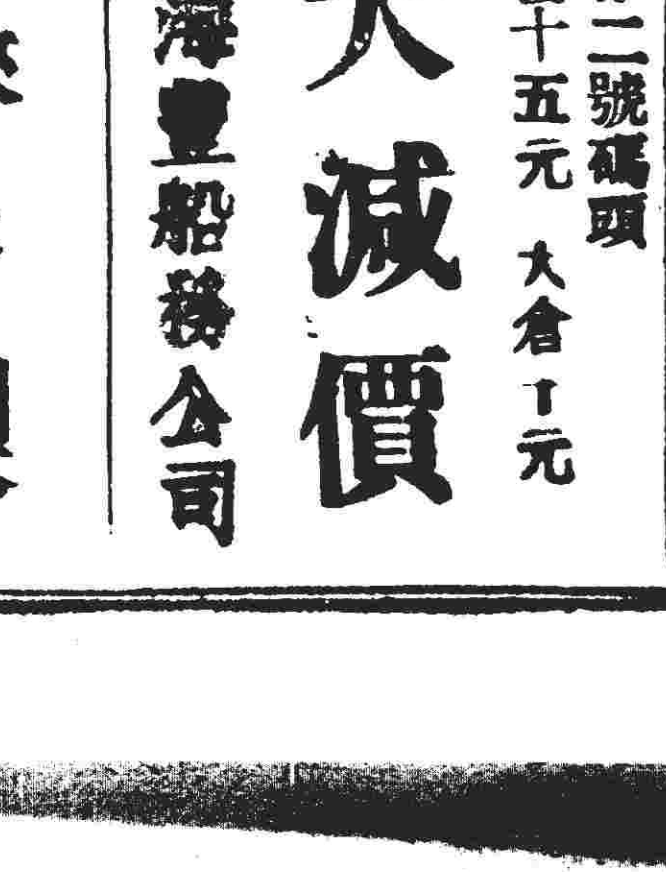 二號碼頭
十五元 大倉十元
大減價
海豐船務公司